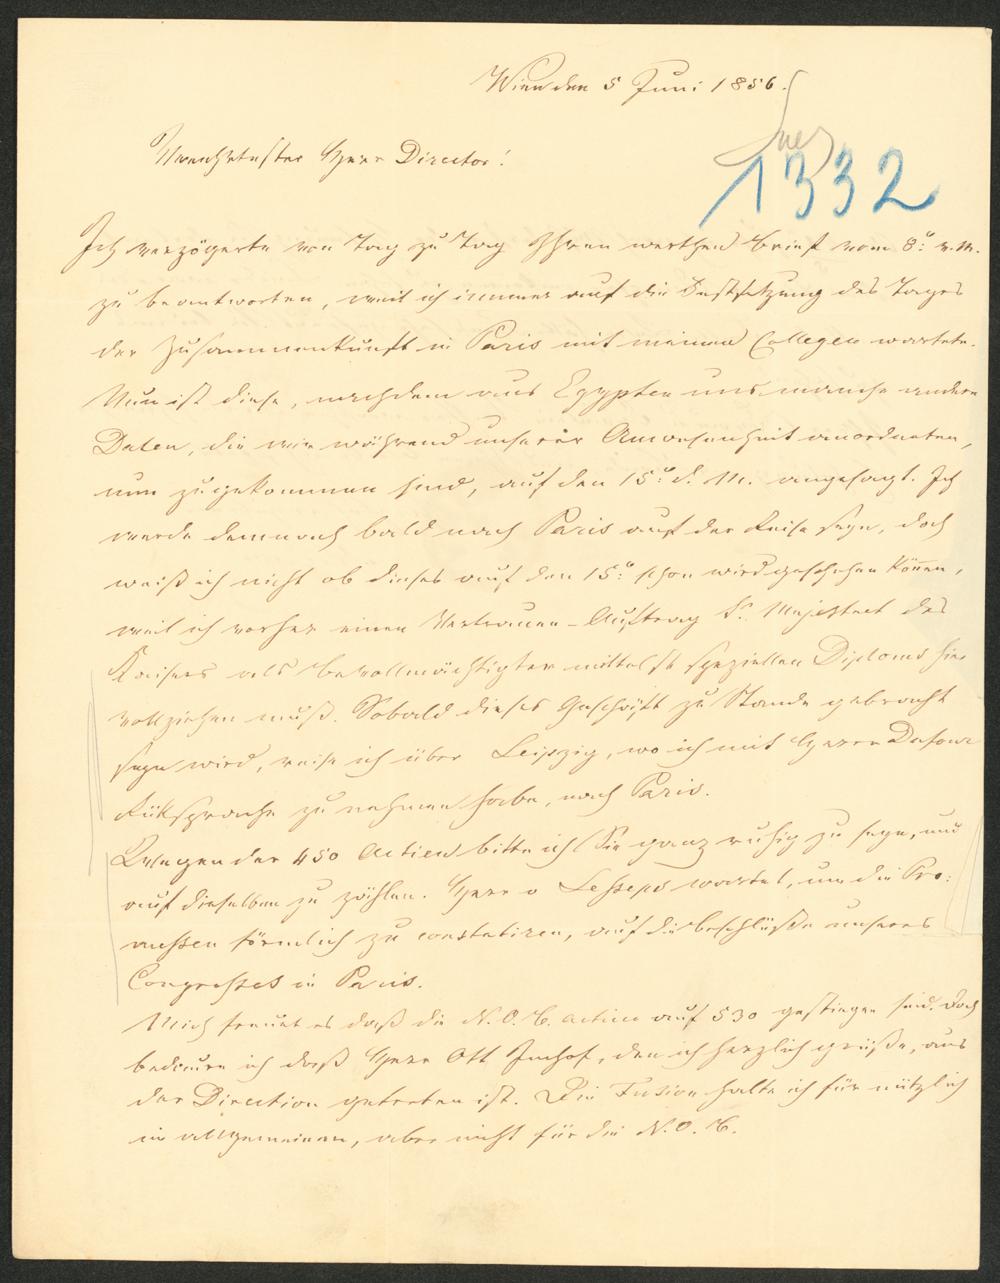 Wien den 5 Juni 1856.
Suez
1332
Verehrtester Herr Director!
Ich verzögerte von Tag zu Tag Ihren werthen Brief vom 8t v. M.
zu beantworten, weil ich immer auf die Festsetzung des Tages
der Zusammenkunft in Paris mit meinen Collegen wartete.
Nun ist diese, nachdem aus Egypten uns manche andere
Daten, die wir während unserer Anwesenheit anordneten,
nun zugekommen sind, auf den 15t d. M. angesagt. Ich
werde demnach bald nach Paris auf der Reise seyn, doch
weiß ich nicht ob dieses auf den 15t schon wird geschehen können,
weil ich vorher einen Vertrauen-Auftrag Sr. Majestaet des
Kaisers als bevollmächtigter mittelst speziellen Diploms hier
vollziehen muß. Sobald dieses Geschäft zu Stande gebracht
seyn wird, reise ich über Leipzig, wo ich mit Herrn Dufour
Rüksprache zu nehmen habe, nach Paris.
Wegen der 450 Actien bitte ich Sie ganz ruhig zu seyn, und
auf dieselben zu zählen. Herr v Lesseps wartet, um die Pro-
messen förmlich zu constatiren, auf die Beschlüße unseres
Congresses in Paris.
Mich freuet es daß die N.O.B. Actien auf 530 gestiegen sind. Doch
bedaure ich daß Herr Ott Imhof, den ich herzlich grüße, aus
der Direction getreten ist. Die Fusion halte ich für nützlich
im allgemeinen, aber nicht für die N.O.B.